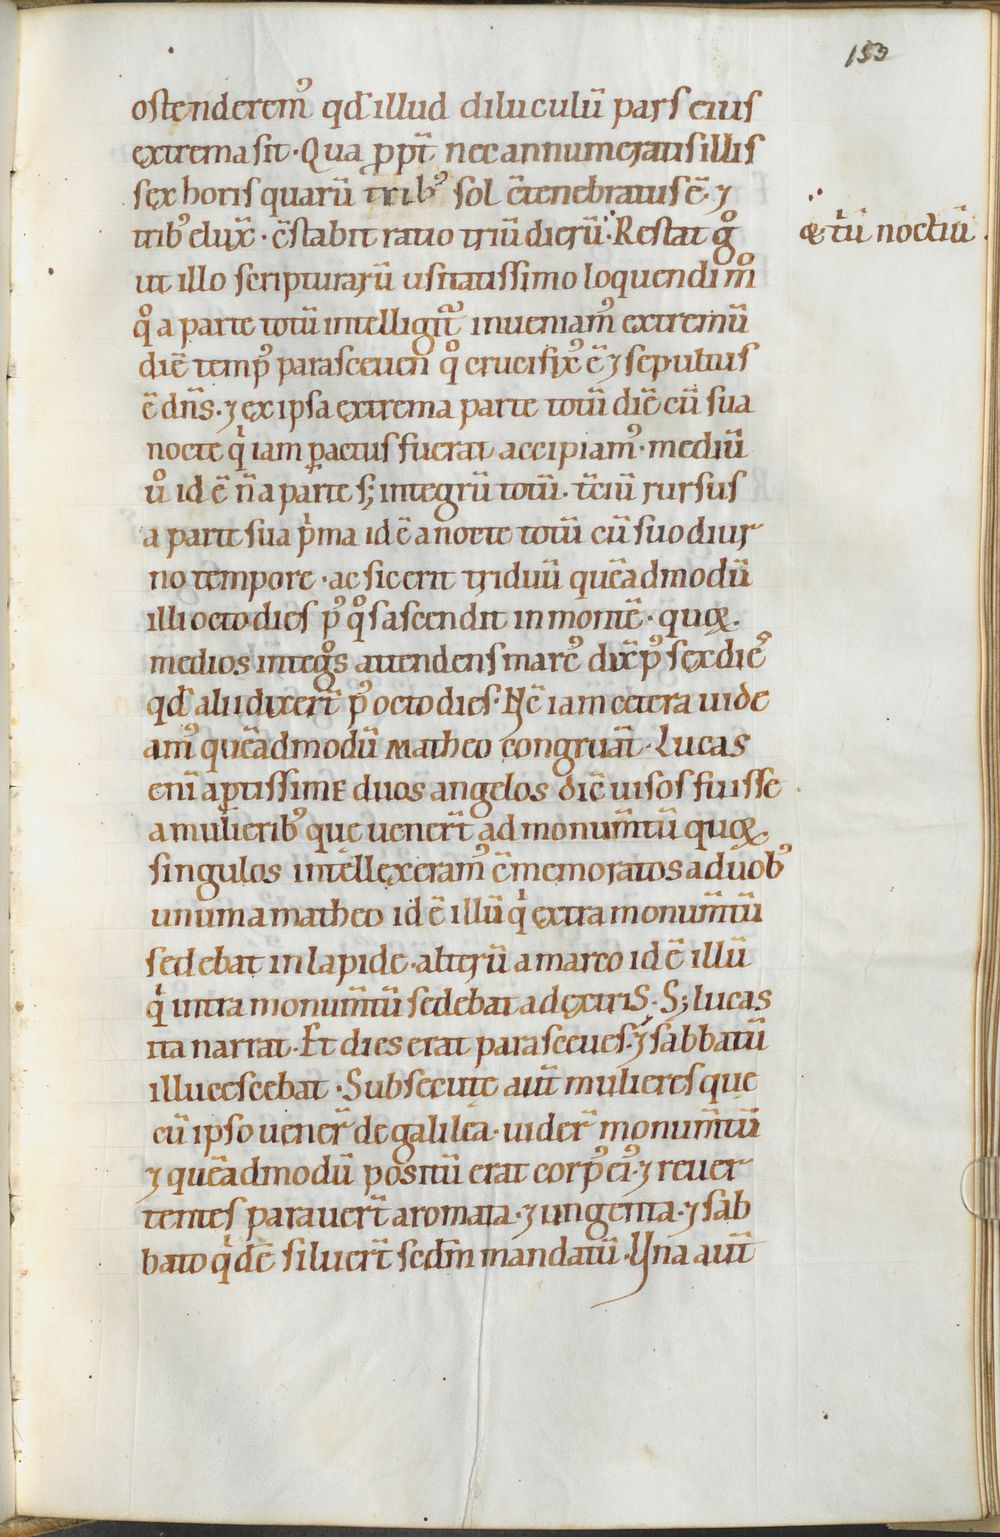 153
ostenderem᾽ qđ illud diluculū pars eius
extrema sit · Qua ꝓpt̄ nec annumeratis illis
sex horis quarū trib᾽ sol c̄tenebratus ē · ⁊
trib᾽ elux̄ · c̄stabit ratio triū dierū · Restat gͦ
& tͥū noctiū .
ut illo scripturarū usitatissimo loquendi mͦ
qͦ a parte totū intelligit᷑ inueniam᾽ extremū
diē temp᾽ parasceuen qͦ crucifix᾽ ē ⁊ sepultus
ē dn̄s · ⁊ ex ipsa extrema parte totū diē cū sua
nocte qͥ iam ꝑactus fuerat accipiam᾽ · mediū
uͦ id ē n̄ a parte s; integrū totū · tc̄iū rursus
a parte sua pͥma id ē a nocte totū cū suo diur
no tempore · ac sic erit triduū quēadmodū
illi octo dies p᾽ qͦs ascendit in montē · quoꝝ
medios integͦs attendens marc᾽ dix̄ p᾽ sex die᾽
qđ alii dixer̄t p᾽ octo dies · Nc̄ iam cetera uide
am᾽ quēadmodū matheo congruāt · Lucas
eni᷑ aptissime duos angelos dic̄ uisos fuisse
a mulierib᾽ quę uener̄t ad monum̄tū quoꝝ
singulos intellexeram᾽ c̄memoratos a duob᾽
unum a matheo id ē illū qͥ extra monum̄tū
sedebat in lapide · alterū a marco id ē illū
qͥ intra monum̄tū sedebat a dextris · S; lucas
ita narrat · Et dies erat parasceues · ⁊ sabbatū
illucescebat · Subsecutę aut̄ mulieres quę
cū ipso uener̄ de galilea · uider̄ monum̄tū
⁊ quēadmodū positū erat corp᾽ ei᾽ · ⁊ reuer
tentes parauer̄t aromata · ⁊ ungenta · ⁊ sab
bato qͥdē siluer̄t sed̄m mandatū · Una aut̄